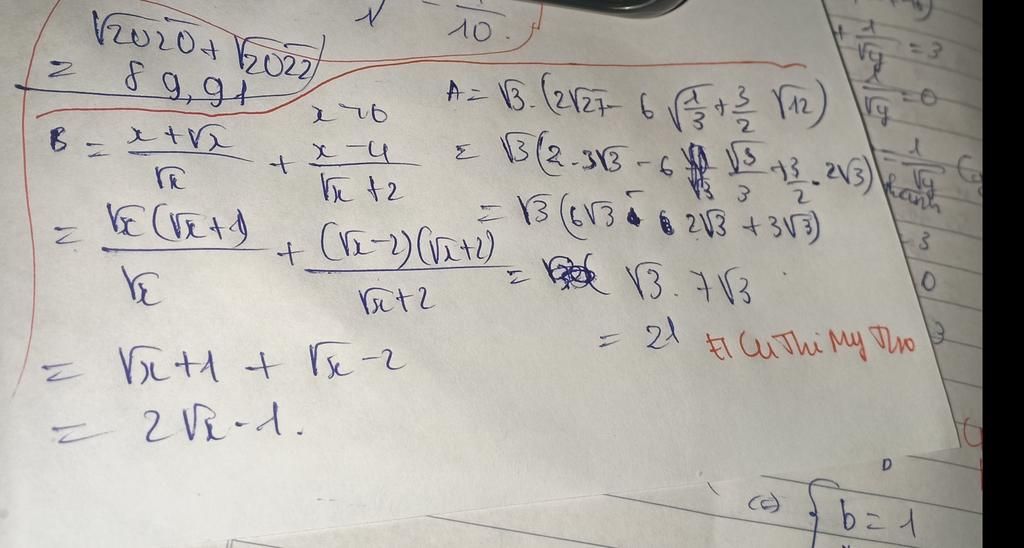 √2020 + √2022
= 89,91
10.
x > 0
B = (x + √x)/√x + (x - 4)/(√x + 2)
= √x(√x + 1)/√x + (√x - 2)(√x + 2)/(√x + 2)
= √x + 1 + √x - 2
= 2√x - 1.
A = √3.(2√27 - 6√(1/3) + 3/2 √12)
= √3(2.3√3 - 6 √3/3 + 3/2.2√3)
= √3(6√3 - 2√3 + 3√3)
= √3. 7√3
= 21
+ 1/√y = 3
1/√y = 0
= 1/√y
3
0
3
c) { b = 1